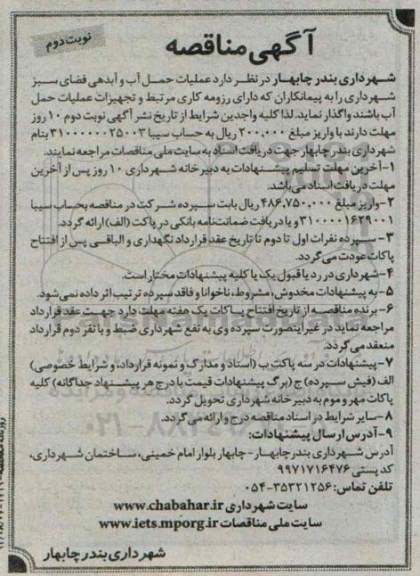 نوبت دوم
آگهی مناقصه
شهرداری بندر چابهار در نظر دارد عملیات حمل آب و آبدهی فضای سبز
شهرداری را به پیمانکاران که دارای رزومه کاری مرتبط و تجهیزات عملیات حمل
آب باشند واگذار نماید. لذا کلیه واجدین شرایط از تاریخ نشر آگهی نوبت دوم ۱۰ روز
مهلت دارند با واریز مبلغ ۲۰۰,۰۰۰ ریال به حساب سیبا ۳۱۰۰۰۰۰۲۵۰۰۳ بنام
شهرداری بندر چابهار جهت دریافت اسناد به سایت ملی مناقصات مراجعه نمایند.
۱-آخرین مهلت تسلیم پیشنهادات به دبیرخانه شهرداری ۱۰ روز پس از آخرین
مهلت دریافت اسناد می‌باشد.
۲-واریز مبلغ ۴۸۶,۷۵۰,۰۰۰ ریال بابت سپرده شرکت در مناقصه بحساب سیبا
۳۱۰۰۰۰۱۶۲۹۰۰۱ و یا دریافت ضمانت‌نامه بانکی در پاکت (الف) ارائه گردد.
۳-سپرده نفرات اول تا دوم تا تاریخ عقد قرارداد نگهداری و الباقی پس از افتتاح
پاکات عودت می‌گردد.
۴-شهرداری در رد یا قبول یک یا کلیه پیشنهادات مختار است.
۵-به پیشنهادات مخدوش، مشروط، ناخوانا و فاقد سپرده ترتیب اثر داده نمی‌شود.
۶-برنده مناقصه از تاریخ افتتاح پاکات یک هفته مهلت دارد جهت عقد قرارداد
مراجعه نماید در غیر اینصورت سپرده وی به نفع شهرداری ضبط و با نفر دوم قرارداد
منعقد می‌گردد.
۷-پیشنهادات در سه پاکت ب (اسناد و مدارک و نمونه قرارداد، و شرایط خصوصی)
الف (فیش سپرده) ج (برگ پیشنهادات قیمت با درج هر پیشنهاد جداگانه) کلیه
پاکات مهر و موم به دبیرخانه شهرداری تحویل گردد.
۸-سایر شرایط در اسناد مناقصه درج و ارائه می‌گردد.
۹-آدرس ارسال پیشنهادات:
آدرس شهرداری بندر چابهار- چابهار بلوار امام خمینی، ساختمان شهرداری،
کد پستی ۹۹۷۱۷۱۶۴۷۶
تلفن تماس: ۳۵۳۲۱۲۵۶-۰۵۴
سایت شهرداری www.chabahar.ir
سایت ملی مناقصات www.iets.mporg.ir
شهرداری بندر چابهار